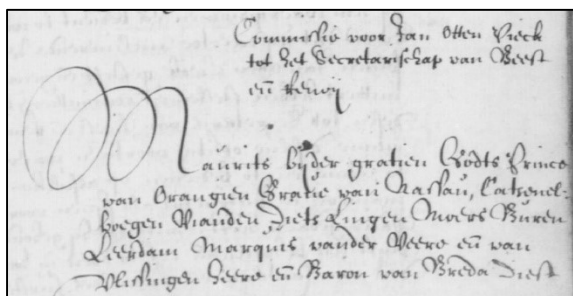 Commissie voor Jan Otten Vieck
tot het Secretarischap van Beest
en Renoij
Maurits bijder gratien Godts Prince
van Orangien Grave van Nassau, Catzenel-
boegen Vianden Diets Lingen Moers Buren
Leerdam Marquis vander Veere en van
Vlissingen heere en Baron van Breda Diest